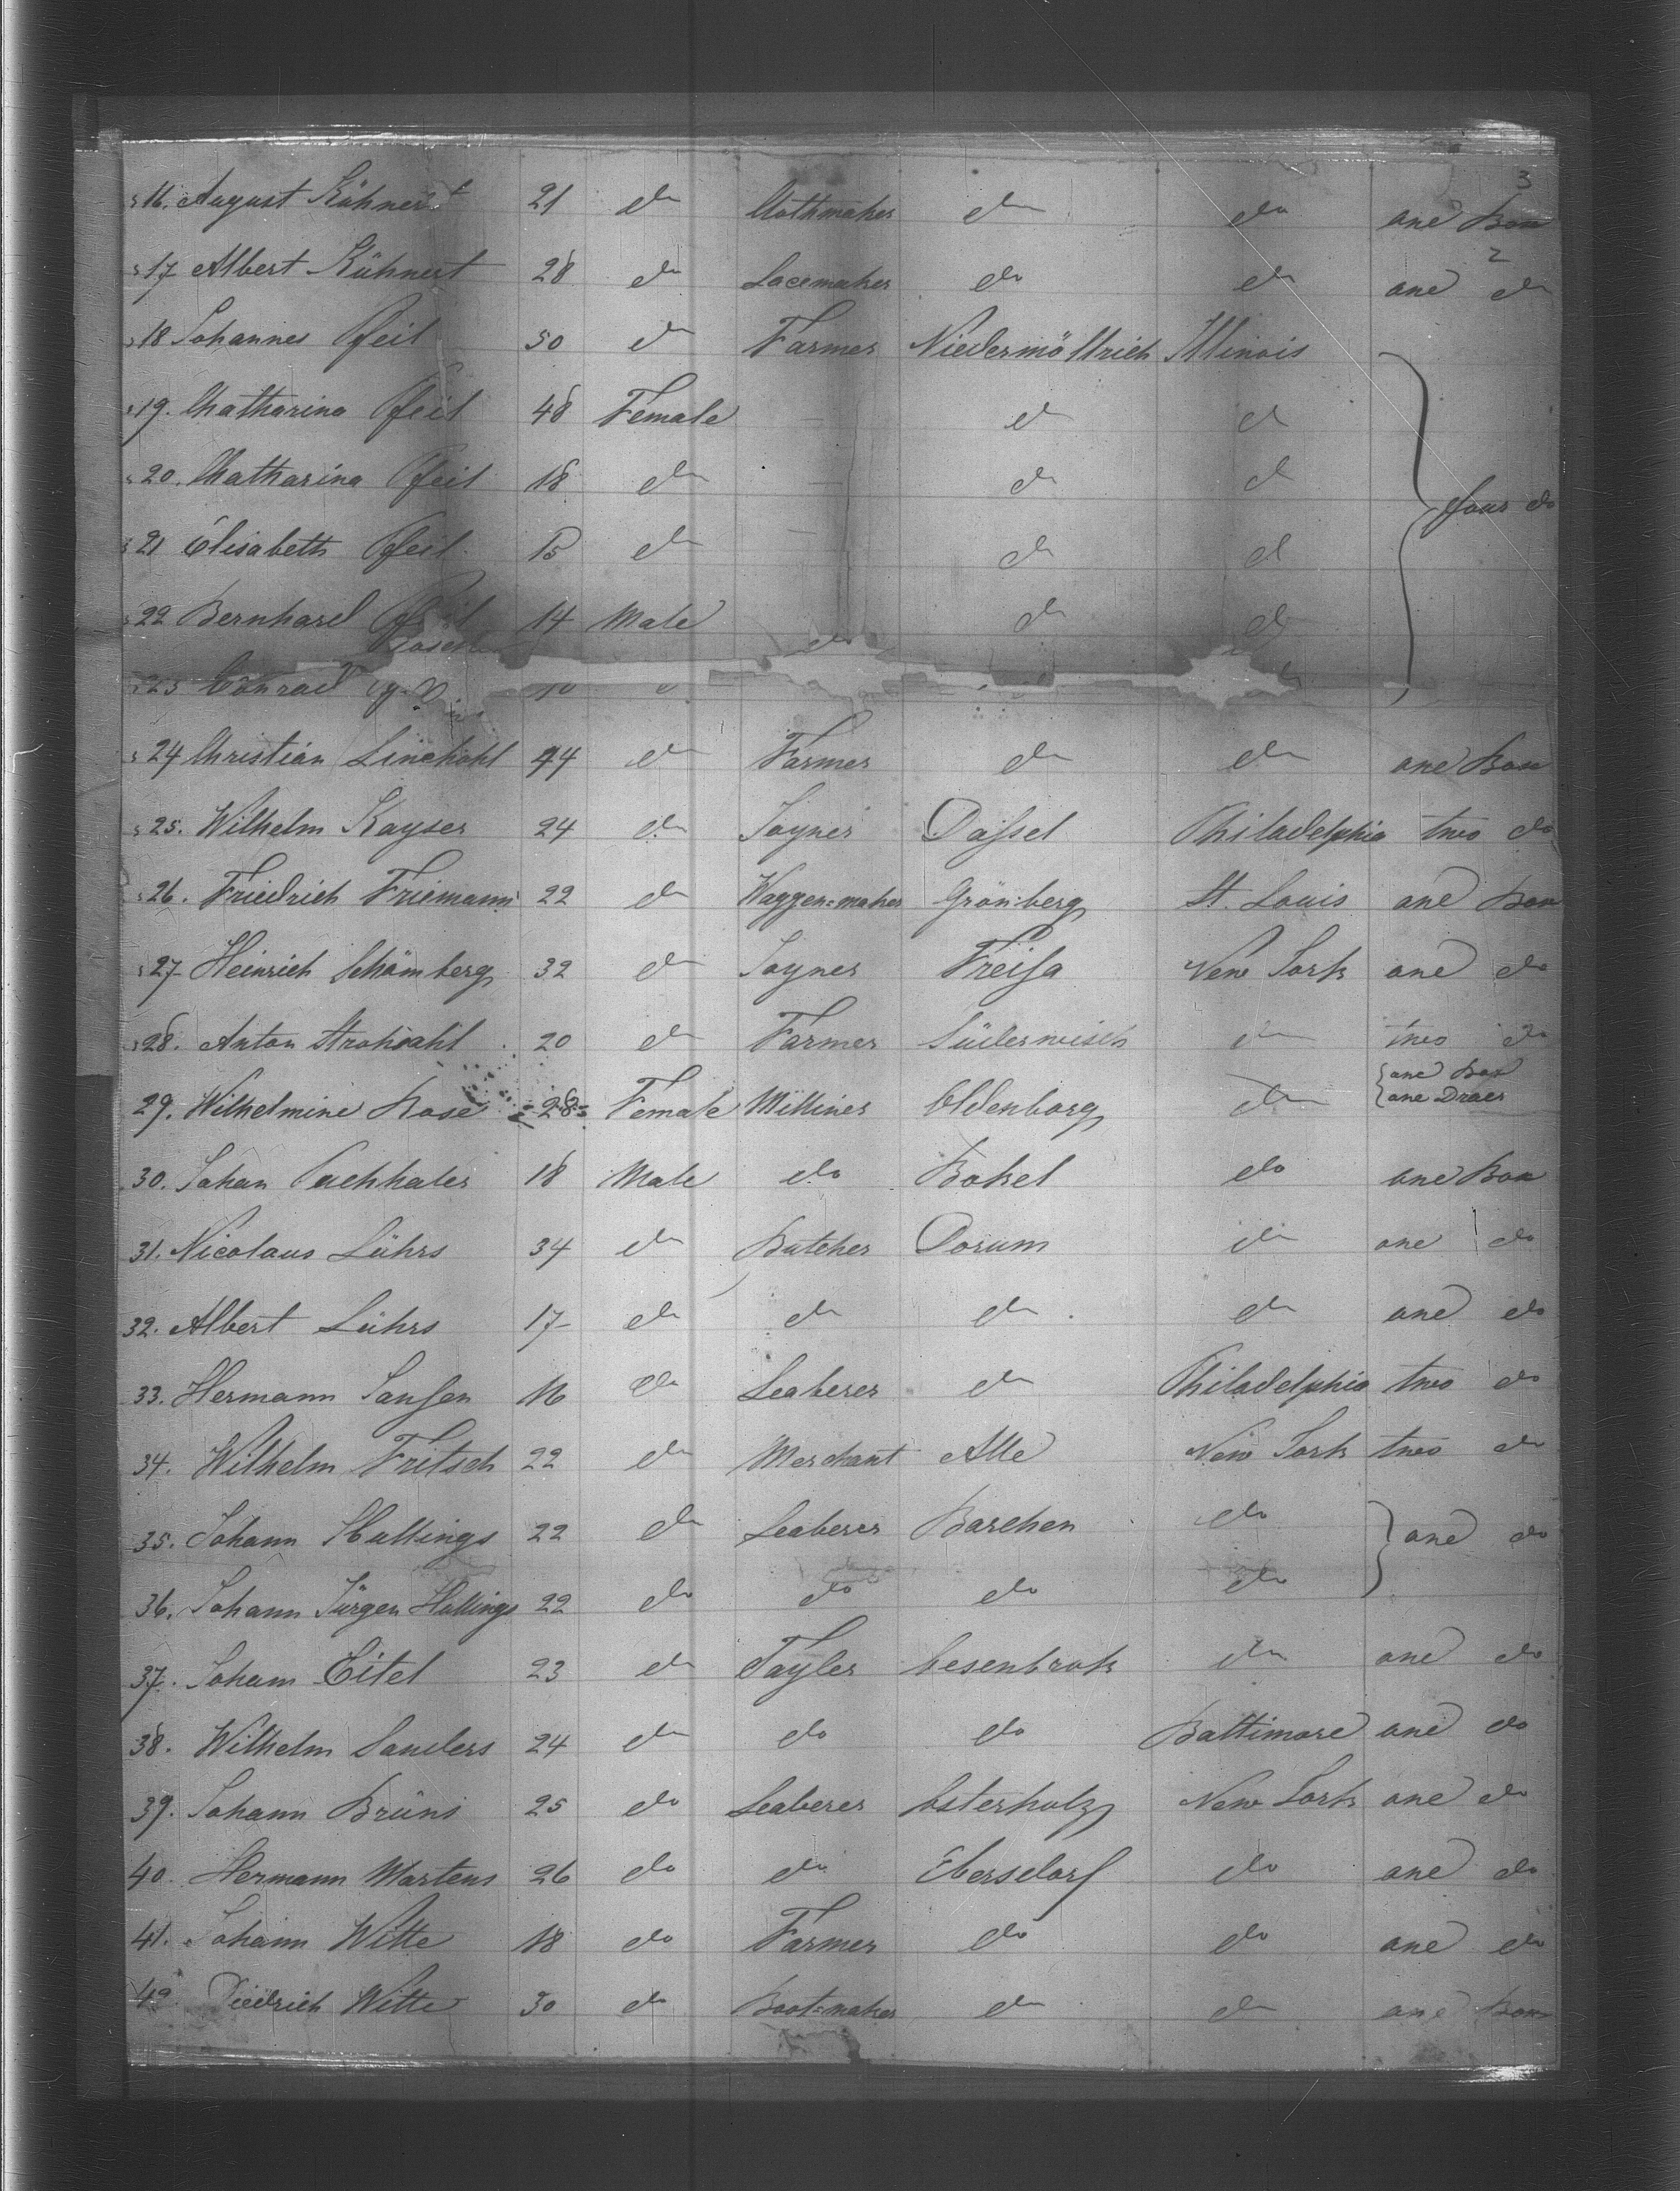 3
16. August Kühnert 21 do Clothmaker do do one Box
2
17 Albert Kühnert 28 do Lacemaker do do one do
18 Johannes Pfeil 50 do Farmer Niedermöllrich Illinois
19. Chatharina Pfeil 48 Female do do
20. Chatharina Pfeil 18 do do do
four do
21 Elisabeth Pfeil 15 do do do
22 Bernhard Pfeil 14 Male do do
do
23 Conrad
24 Christian Linekohl 44 do Farmer do do one Box
25. Wilhelm Kayser 24 do Joyner Dassel Philadelphia two do
26. Friedrich Friemann 22 do Waggen=maker Grönberg St. Louis one Box
27 Heinrich Schömberg 32 do Joyner Freisa New York one do
28. Anton Strohsahl 20 do Farmer Süderwisch do two do
one Box
29. Wilhelmine Rose 28 Female Milliner Oldenborg do one Draer
30. Johan 18 Male do Bokel do one Box
31. Nicolaus Lührs 34 do Butcher Dorum do one do
32. Albert Lührs 17 do do do do one do
33. Hermann Jansen 16 do Leaberer do Philadelphia two do
34. Wilhelm Fritsch 22 do Merchant Alle New York two do
35. Johann Hullings 22 do Leaberer Barchen do one do
36. Johann Jürgen Hullings 22 do do do do
37. Joham Eitel 23 do Tayler Cesenbrok do one do
38. Wilhelm Sanders 24 do do do Baltimore one do
39. Johann Brüns 25 do Leaberer Osterholz New York one do
40. Hermann Martens 26 do do Ebersdorf do one do
41. Johann Witte 18 do Farmer do do one do
42 Diedrich Witte 30 do Boot=maker do do one Box